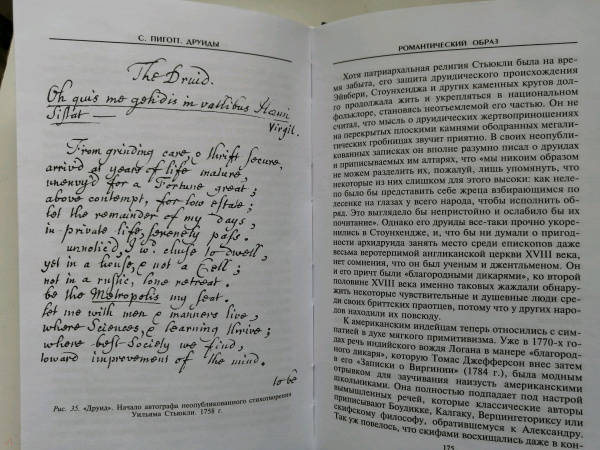 С. ПИГОТТ. ДРУИДЫ
The Druid.
Oh quis me gelidis in vallibus Haemi
Sistat —
Virgil.
From grinding care, & thrift secure,
arriv'd at years of life mature,
unenvy'd for a Fortune great;
above contempt, for low estate;
let the remainder of my days,
in private life, serenely pass.
unnotic'd, I w'd. chuse to dwell,
yet in a house, & not a Cell;
not in a rustic, lone retreat.
be the Metropolis my seat.
let me with men & manners live,
where Sciences, & learning thrive;
where best Society we find,
toward improvement of the mind.
to be
Рис. 35. «Друид». Начало автографа неопубликованного стихотворения
Уильяма Стьюкли. 1758 г.
РОМАНТИЧЕСКИЙ ОБРАЗ
Хотя патриархальная религия Стьюкли была на вре-
мя забыта, его защита друидического происхождения
Эйвбери, Стоунхенджа и других каменных кругов дол-
го продолжала жить и укрепляться в национальном
фольклоре, становясь неотъемлемой его частью. Он не
считал, что мысль о друидических жертвоприношениях
на перекрытых плоскими камнями ободранных мегали-
тических гробницах звучит приятно. В своих неопубли-
кованных записках он вполне разумно писал о друидах
и приписываемых им алтарях, что «мы никоим образом
не можем разделить их, пожалуй, лишь упомянуть, что
некоторые из них слишком для этого высоки: как неле-
по было бы представить себе жреца взбирающимся по
лесенке на глазах у всего народа, чтобы исполнить об-
ряд. Это выглядело бы непристойно и ослабило бы их
почитание». Однако его друиды все-таки прочно укоре-
нились в Стоунхендже, и, что бы ни думали о пригод-
ности архидруида занять место среди епископов даже
весьма веротерпимой англиканской церкви XVIII века,
нет сомнения, что он был ученым и джентльменом. Он
и его причт были «благородными дикарями», ко второй
половине XVIII века именно таковых жаждали обнару-
жить некоторые чувствительные и душевные люди сре-
ди своих бриттских праотцев, потому что у других наро-
дов их находили повсюду.
К американским индейцам теперь относились с сим-
патией в духе мягкого примитивизма. Уже в 1770-х го-
дах речь индийского вождя Логана в манере «благород-
ного дикаря», которую Томас Джефферсон внес затем
в его «Записки о Виргинии» (1784 г.), была модным
отрывком для заучивания наизусть американскими
школьниками. Она полностью подпадает под настрой
вымышленных речей, которые классические авторы
приписывают Боудикке, Калгаку, Верцингеториксу или
скифскому философу, обратившемуся к Александру.
Так уж повелось, что скифами восхищались даже в кон-
175